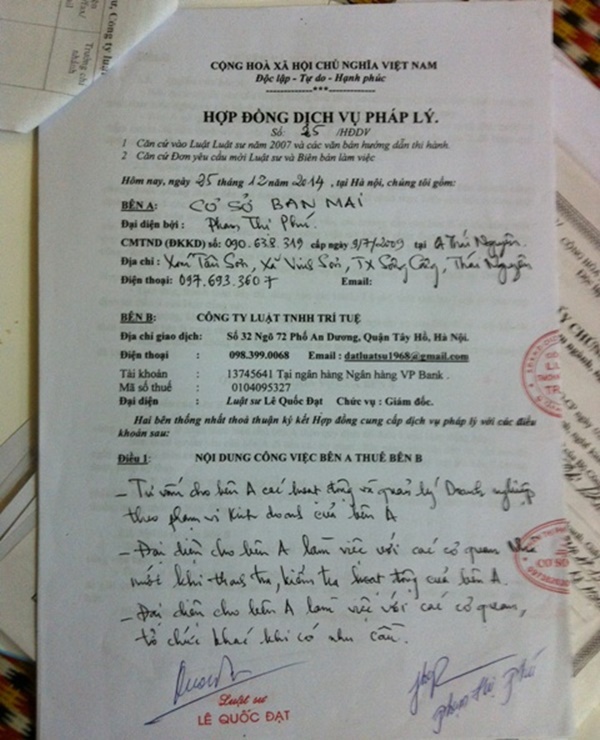 CỘNG HOÀ XÃ HỘI CHỦ NGHĨA VIỆT NAM
Độc lập - Tự do - Hạnh phúc
-------------***-------------
HỢP ĐỒNG DỊCH VỤ PHÁP LÝ.
Số: 25 /HĐDV
1 Căn cứ vào Luật Luật sư năm 2007 và các văn bản hướng dẫn thi hành.
2 Căn cứ Đơn yêu cầu mời Luật sư và Biên bản làm việc
Hôm nay, ngày 25 tháng 12 năm 2014, tại Hà nội, chúng tôi gồm:
BÊN A: CƠ SỞ BAN MAI
Đại diện bởi : Phạm Thị Phú.
CMTND (ĐKKD) số: 090.638.319 cấp ngày 9/7/2009 tại CA Thái Nguyên.
Địa chỉ : Xóm Tân Sơn, Xã Vinh Sơn, TX Sông Công, Thái Nguyên
Điện thoại: 097.693.3607 Email:
BÊN B: CÔNG TY LUẬT TNHH TRÍ TUỆ
Địa chỉ giao dịch: Số 32 Ngõ 72 Phố An Dương, Quận Tây Hồ, Hà Nội.
Điện thoại : 098.399.0068 Email : datluatsu1968@gmail.com
Tài khoản : 13745641 Tại ngân hàng Ngân hàng VP Bank .
Mã số thuế : 0104095327
Đại diện : Luật sư Lê Quốc Đạt Chức vụ : Giám đốc.
Hai bên thống nhất thoả thuận ký kết Hợp đồng cung cấp dịch vụ pháp lý với các điều
khoản sau:
Điều 1: NỘI DUNG CÔNG VIỆC BÊN A THUÊ BÊN B
- Tư vấn cho bên A các hoạt động và quản lý Doanh nghiệp
theo phạm vi kinh doanh của bên A
- Đại diện cho bên A làm việc với các cơ quan
khi thanh tra, kiểm tra hoạt động của bên A.
- Đại diện cho bên A làm việc với các cơ quan,
tổ chức khác khi có nhu cầu.
Luật sư
LÊ QUỐC ĐẠT
Phạm Thị Phú